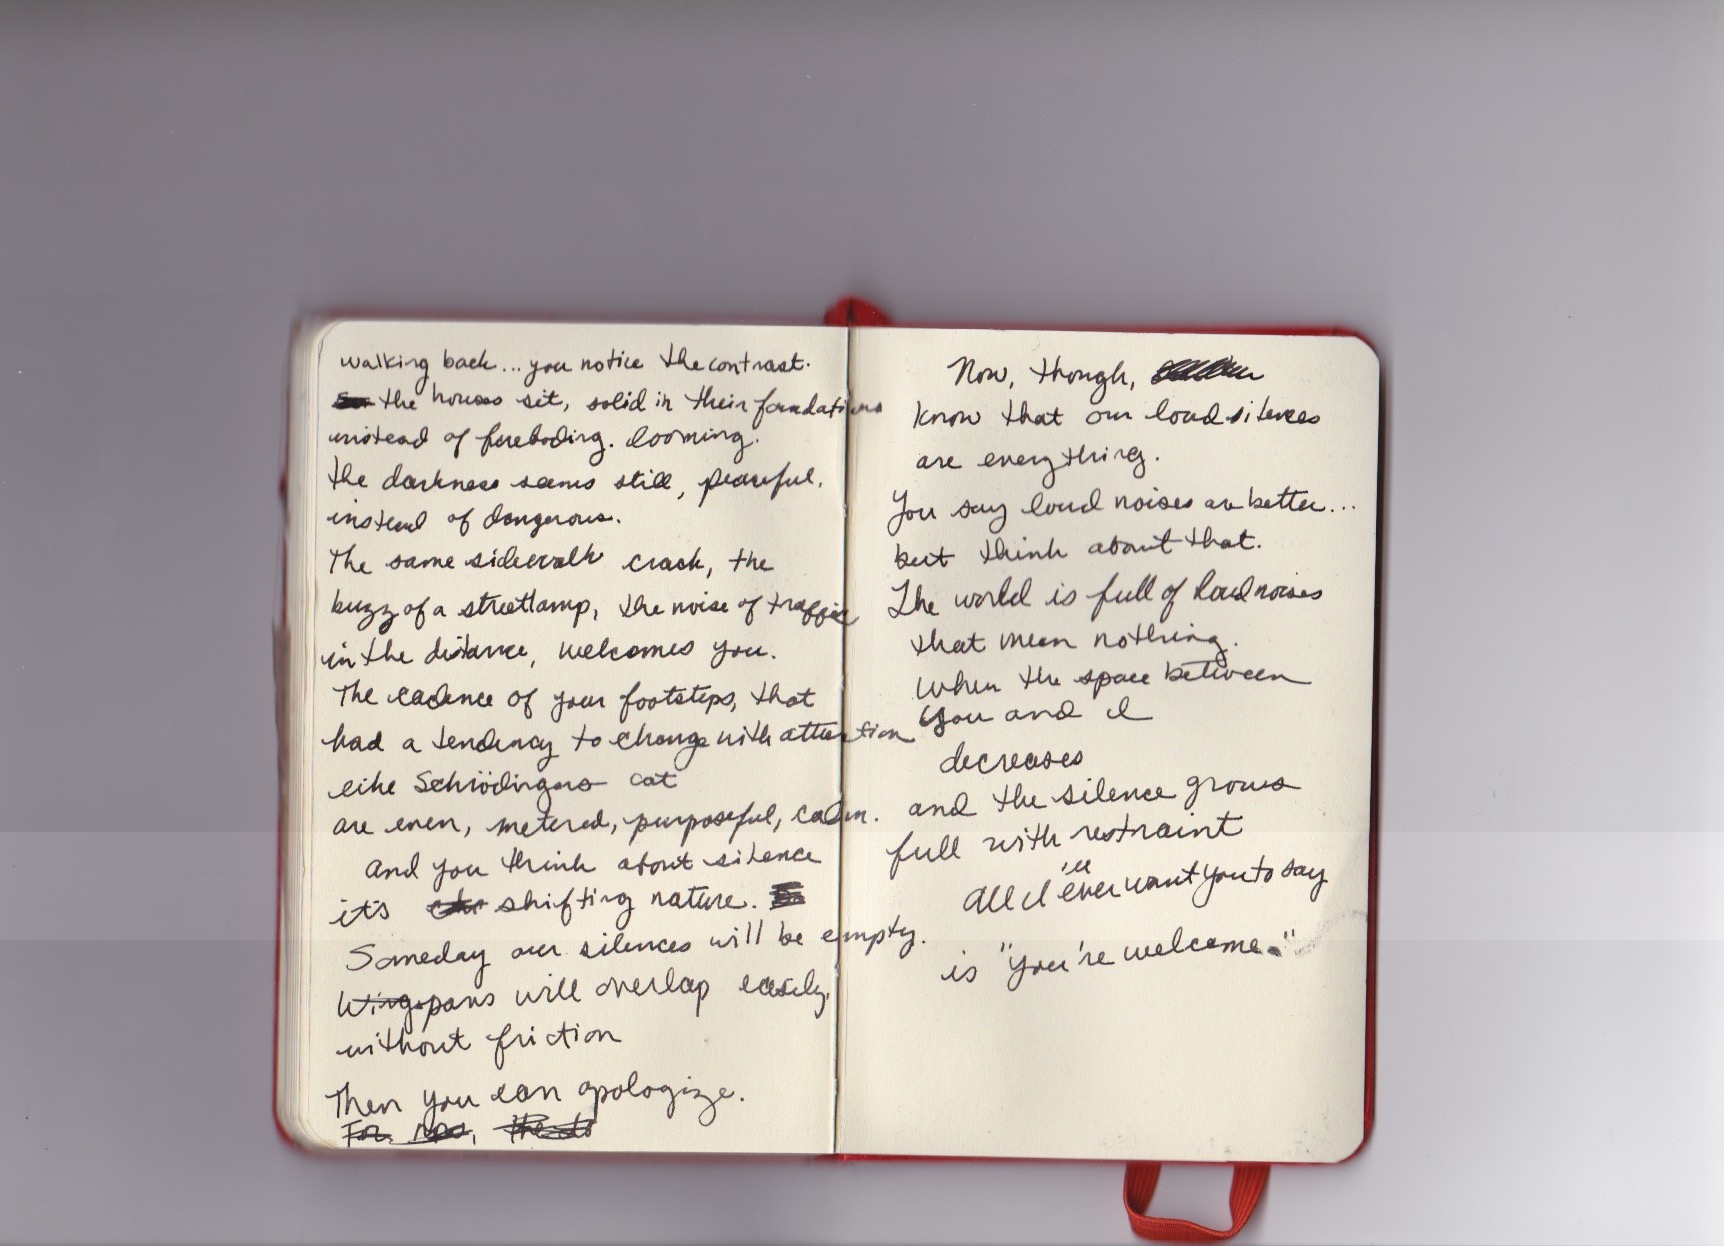 walking back... you notice the contrast.
the houses sit, solid in their foundations
instead of foreboding. looming.
the darkness seems still, peaceful.
instead of dangerous.
The same sidewalk crack, the
buzz of a streetlamp, the noise of traffic
in the distance, welcomes you.
The cadence of your footsteps, that
had a tendency to change with attention
like Schrödingers cat
are even, metered, purposeful, calm.
and you think about silence
it's shifting nature.
Someday our silences will be empty.
Wingspans will overlap easily,
without friction
Then you can apologize.
For now,
Now, though,
know that our loud silences
are everything.
You say loud noises are better...
but think about that.
The world is full of loud noises
that mean nothing.
When the space between
you and I
decreases
and the silence grows
full with restraint
all I'll ever want you to say
is "you're welcome."